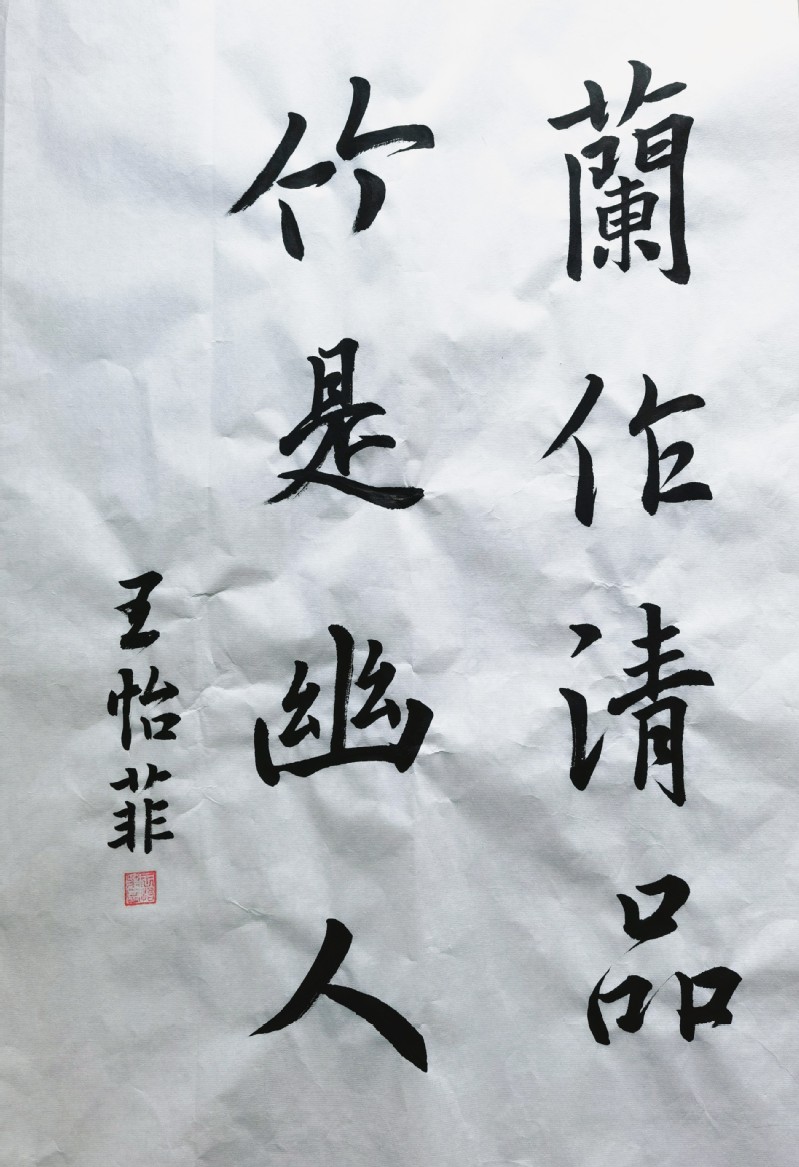 蘭作清品
竹是幽人
王怡菲